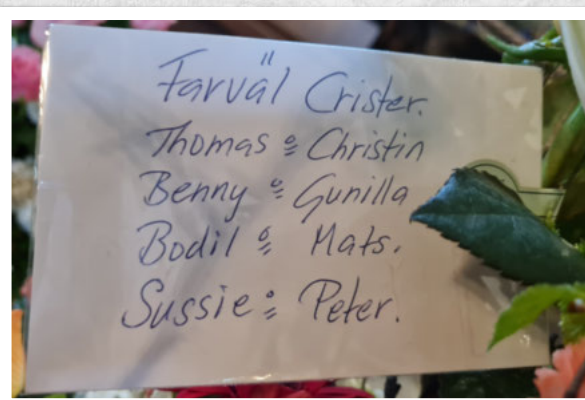 Farväl Crister.
Thomas & Christin
Benny & Gunilla
Bodil & Mats.
Sussie & Peter.